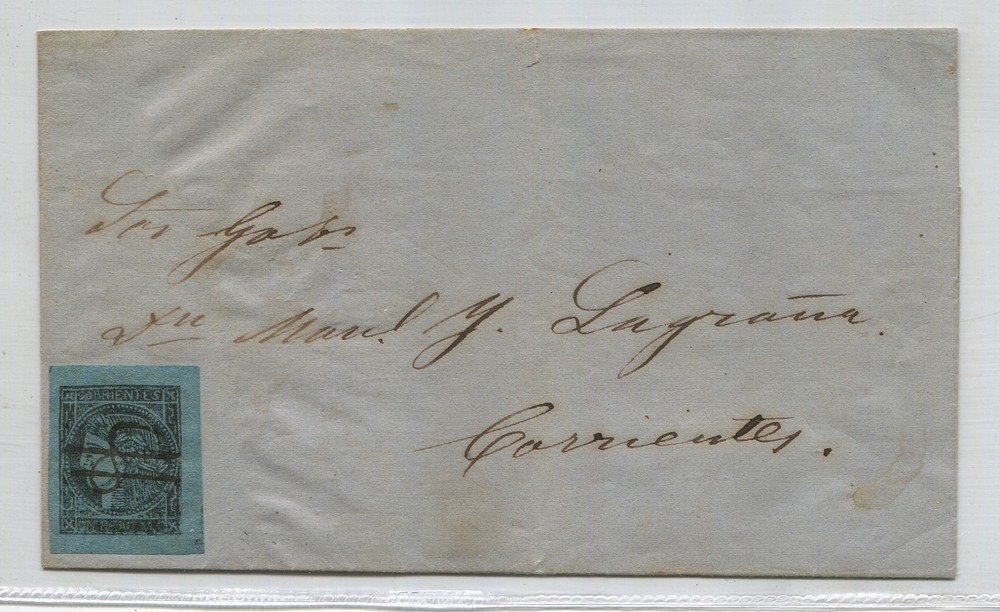 Sor Gobr
Dn Manl Y. Lagraña.
Corrientes.
CORRIENTES